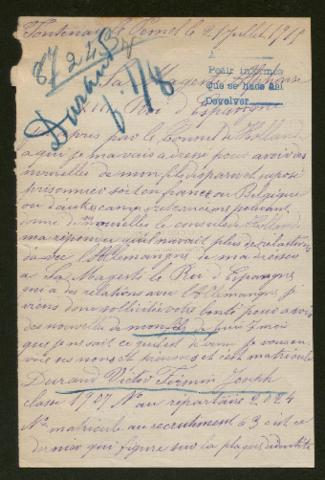 Fontenay le Comel le 21 juillet 1915
87245
A
Sa Magesté Alphonse
Pedir informes
que se hace así
Devolver
XIII Roi d'Espagne
Durand
1/8
J'apres par le Consul de Hollande
a qui je mavais adressé pour avoir des
nouvelles de mon fils disparu et suposé
prisonnier soit en france au Belgique
ou d'autre camp
de nouvelle le consul de Hollande
ma réponu qu'il navait plus de relations
avec l'Allemangne de madresser
as Sa Magesté le Roi d'Espagne
qui a des relations avec l'Allemangne je
viens donc solliciter votre bonté pour avoir
des nouvelle de mon fils
que je ne sait ce qu'il est devenu je vous en
voie ses noms et prenoms et son matricule
Durand Victor Firmin Joseph
classe 1907 No au répertoire 2024
No matricule au recrutement 63 c'est ce
dernier qui figure sur la plaque didentité